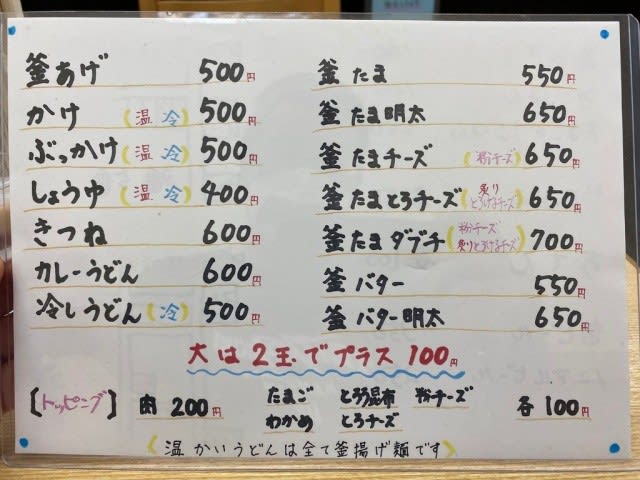 釜あげ 500円
かけ (温 冷) 500円
ぶっかけ (温 冷) 500円
しょうゆ (温 冷) 400円
きつね 600円
カレーうどん 600円
冷しうどん (冷) 500円
釜たま 550円
釜たま明太 650円
釜たまチーズ (粉チーズ) 650円
釜たまとろチーズ (炙りとろけるチーズ) 650円
釜たまダブチ (粉チーズ 炙りとろけるチーズ) 700円
釜バター 550円
釜バター明太 650円
大は2玉でプラス100円
【トッピング】 肉 200円 たまご とろろ昆布 粉チーズ 各100円
わかめ とろチーズ
(温かいうどんは全て釜揚げ麺です)